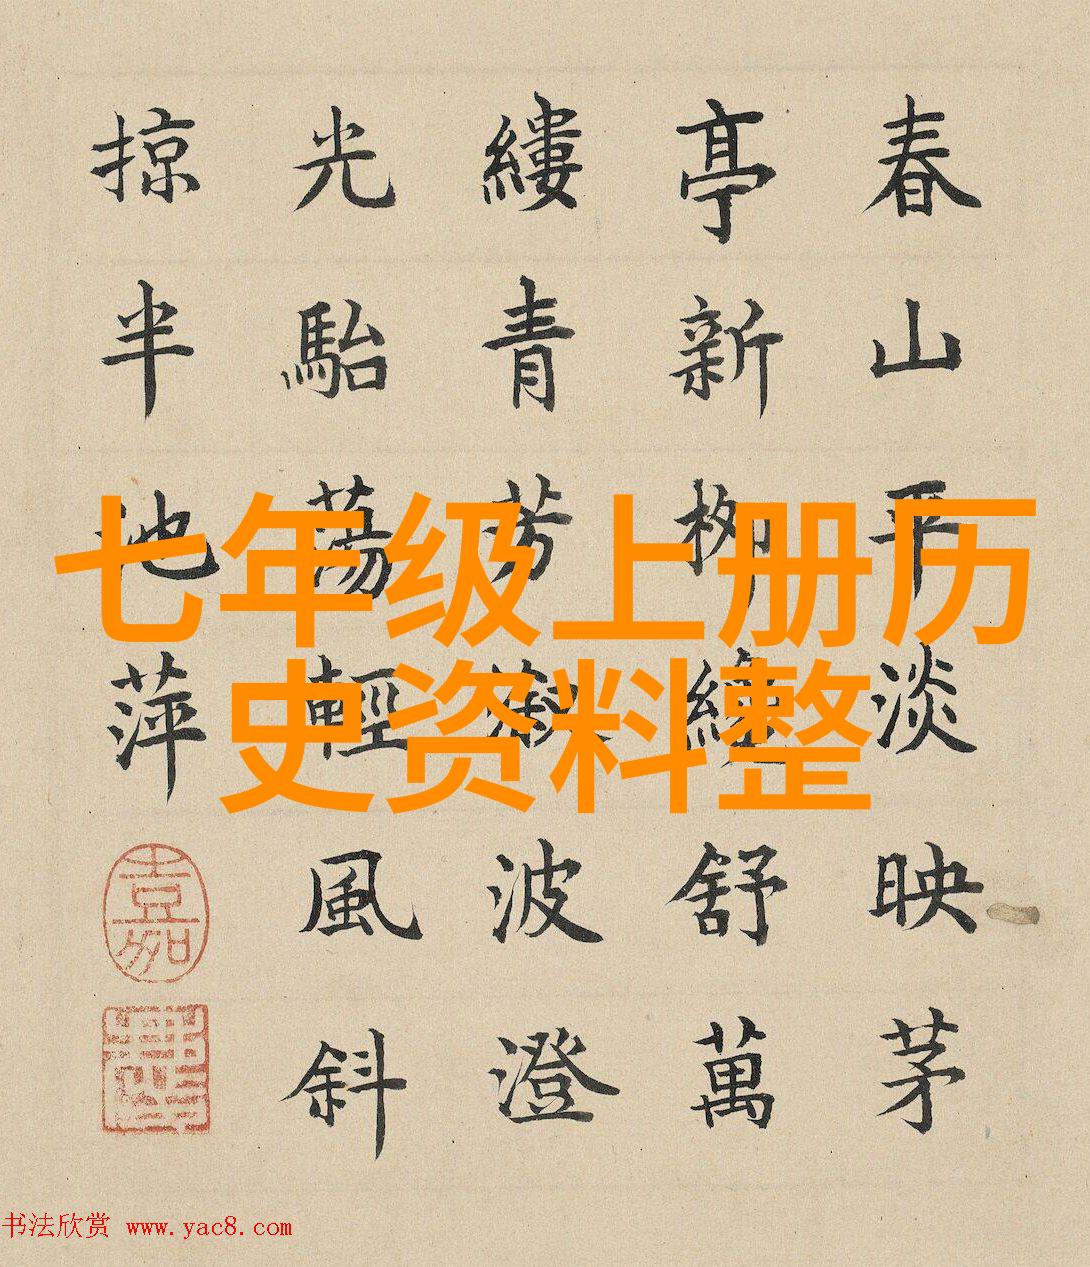 春山平淡映茅
亭新柳舒萬
縷青芳波澄
光駘蕩輕風斜
掠半池萍
嘉
七年级上册历
史资料整
书法欣赏 www.yac8.com